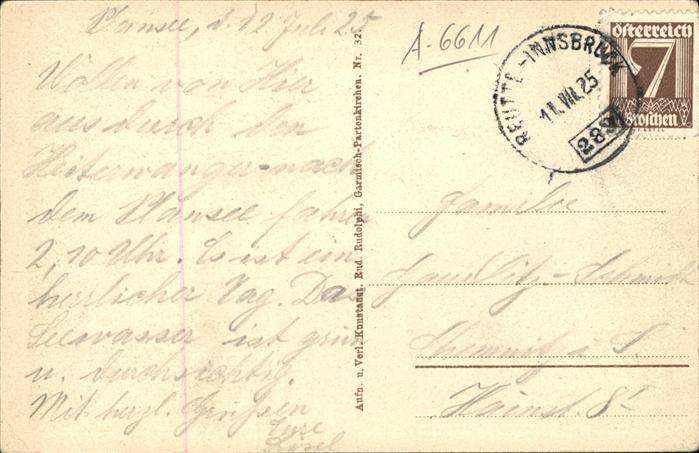 Plansee, d. 12 Juli 25
Wollen von Hier
aus durch den
Heiterwanger- nach
dem Plansee fahren
2,10 Uhr. Es ist ein
herrlicher Tag. Das
Seewasser ist grün
u. durchsichtig.
Mit herzl. Grüssen
Eure
A-6611
REUTTE-INNSBRUCK
11.VII.25
Österreich
7
Groschen
Aufn. u. Verl. Kunstanst. Eud. Rudolphi, Garmisch-Partenkirchen. Nr. 32.
Familie
Chemnitz i. S